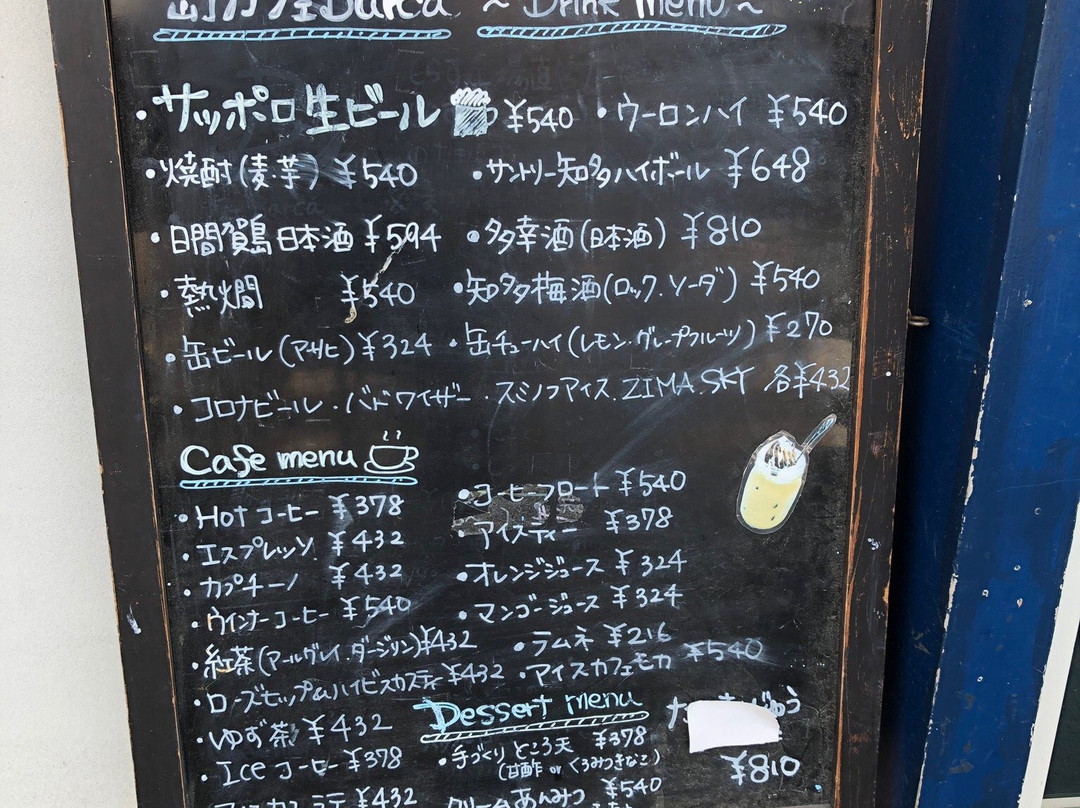 島カフェBarca ~ Drink Menu ~
・サッポロ生ビール ¥540 ・ウーロンハイ ¥540
・焼酎(麦・芋) ¥540 ・サントリー知多ハイボール ¥648
・日間賀島日本酒 ¥594 ・多幸酒(日本酒) ¥810
・熱燗 ¥540 ・知多梅酒(ロック、ソーダ) ¥540
・缶ビール(アサヒ) ¥324 ・缶チューハイ(レモン・グレープフルーツ) ¥270
・コロナビール・バドワイザー・スミノフアイス.ZIMA.SKY 各¥432
Cafe menu
・Hot コーヒー ¥378 ・コーヒーフロート ¥540
・エスプレッソ ¥432 ・アイスティー ¥378
・カプチーノ ¥432 ・オレンジジュース ¥324
・ウインナーコーヒー ¥540 ・マンゴージュース ¥324
・紅茶(アールグレイ.ダージリン) ¥432 ・ラムネ ¥216
・ローズヒップ&ハイビスカスティ ¥432 ・アイスカフェモカ ¥540
・ゆず茶 ¥432
・Ice コーヒー ¥378
¥432
Dessert menu
・手づくりところ天 ¥378
(甘酢 or くるみつきなこ)
クリームあんみつ ¥540
¥810